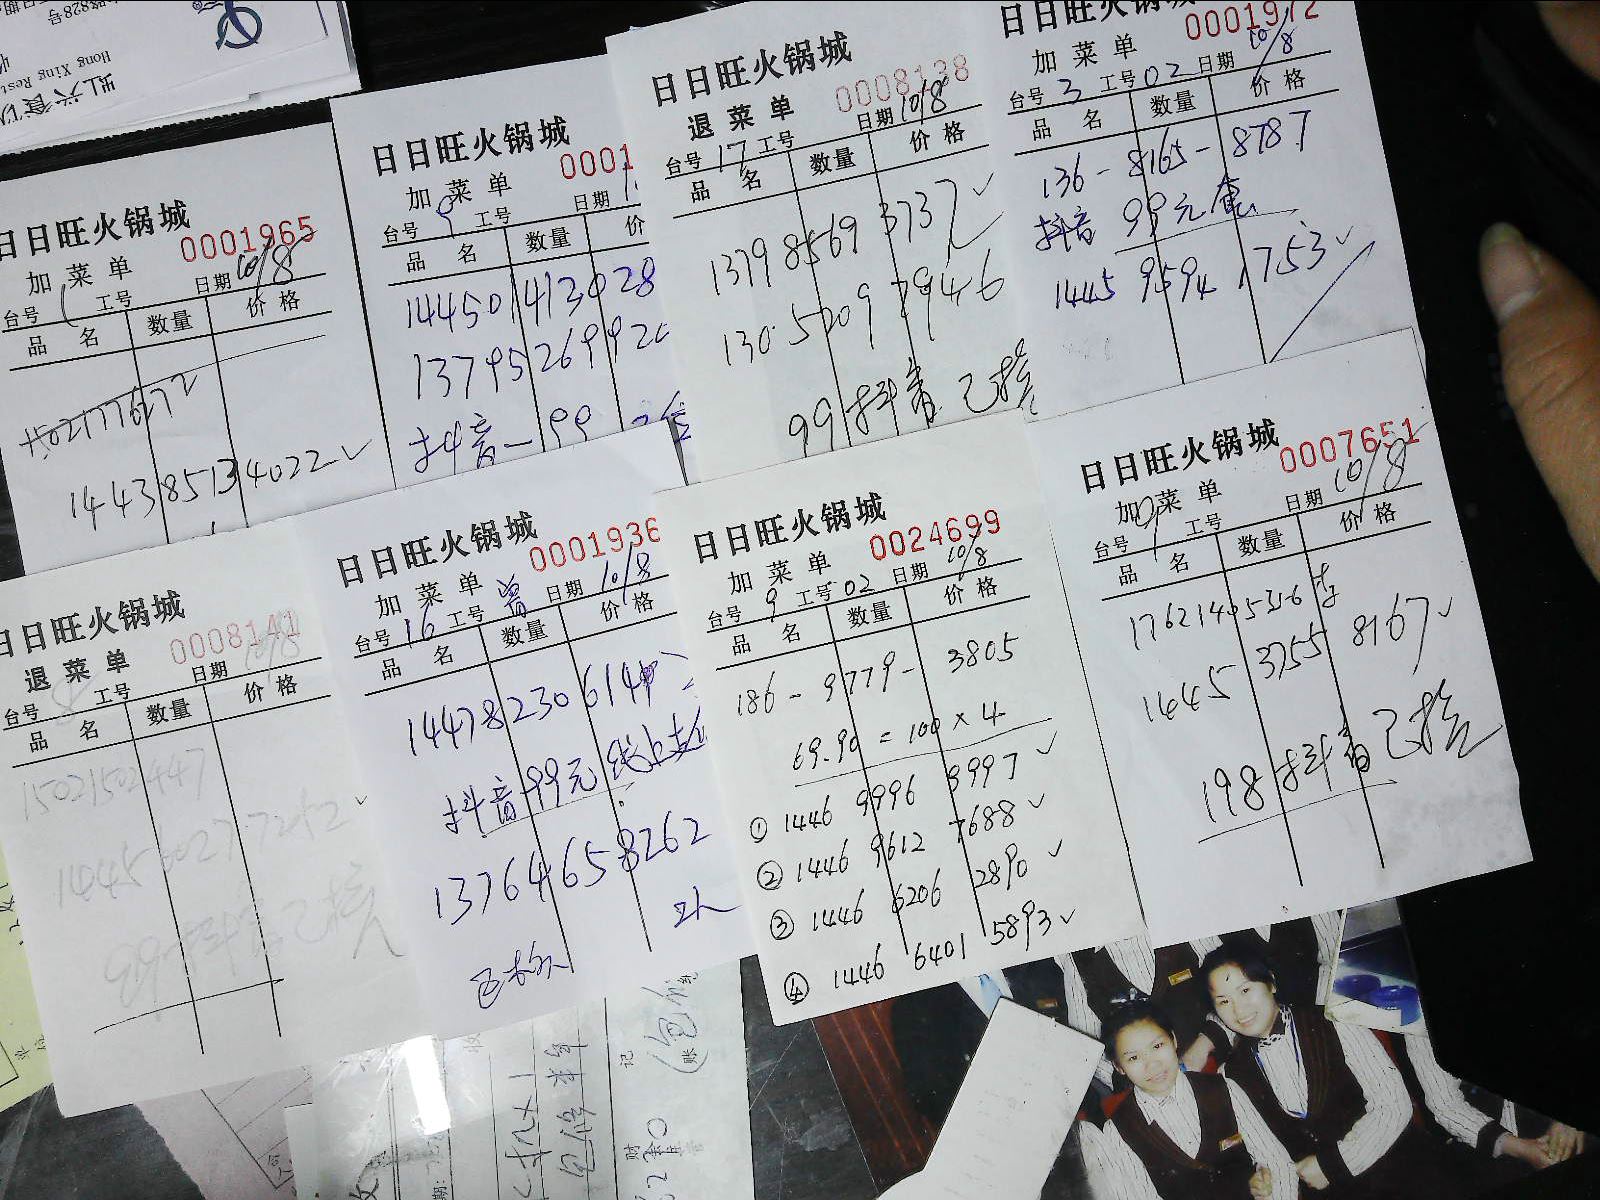 日日旺火锅城
0001965
加菜单
日期 10/8
台号 1 工号
品名 数量 价格
15021776172
1443 8513 4022 ✓
日日旺火锅城
0001
加菜单
台号 9 工号 日期
品名 数量 价
14450 1413028
13795269920
抖音一99
日日旺火锅城
0008138
退菜单
日期 10/8
台号 17 工号
品名 数量 价格
1379 8569 3737 ✓
130 5209 7946
99 抖音 已核
日日旺火锅城
0001972
加菜单
10/8
台号 3 工号 02 日期
品名 数量 价格
136 - 8165 - 8787
抖音 99元
1445 9594 1753 ✓
日日旺火锅城
0008141
退菜单
日期 10/8
台号 8 工号
品名 数量 价格
15021502447
1445 6027 7212 ✓
99 抖音已核
日日旺火锅城
0001936
加菜单
日期 10/8
台号 16 工号 曾
品名 数量 价格
14478230614
抖音 99元 线上
13764658262
已核
日日旺火锅城
0024699
加菜单
日期 10/8
台号 9 工号 02
品名 数量 价格
186 - 9779 - 3805
69.90 = 100 × 4
① 1446 9996 9997 ✓
② 1446 9612 7688 ✓
③ 1446 6206 2890 ✓
④ 1446 6401 5893 ✓
日日旺火锅城
0007651
加菜单
日期 10/8
台号 工号
品名 数量 价格
17621405316 李
1445 3755 8167 ✓
198 抖音已核
Hong Xing Rest
828号